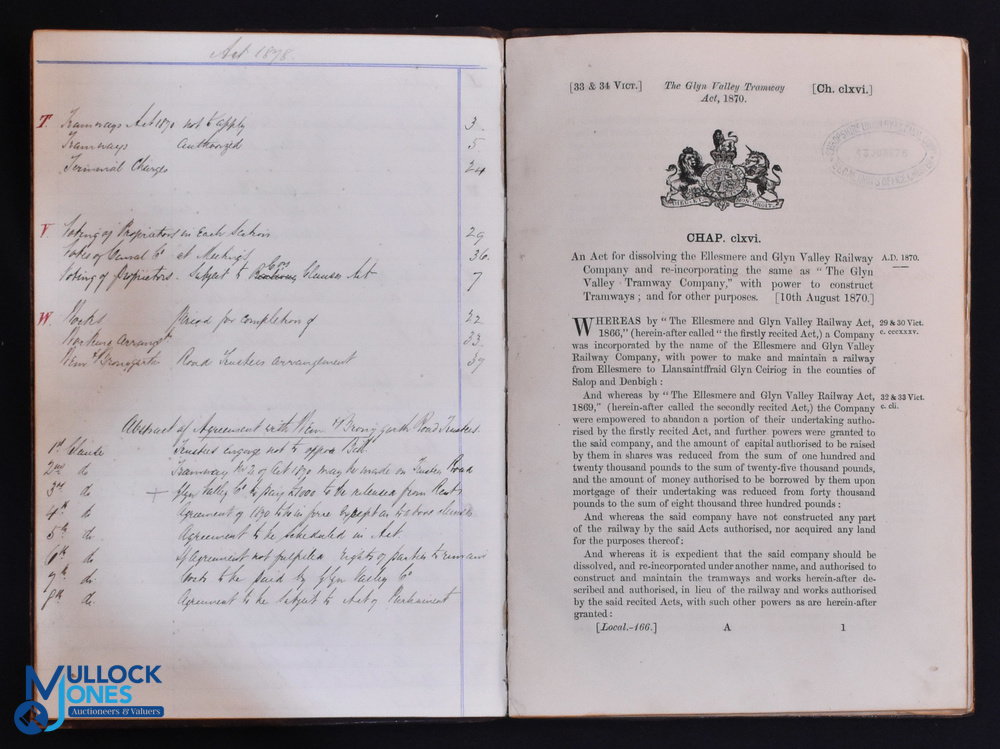 Act 1878.
T. Tramways Act 1870 not to apply 3.
Tramways authorized 5.
Terminal Charges 24
V. Voting of Proprietors in Each Section 29
Votes of Canal Co at Meetings 36.
Voting of Proprietors. Subject to Cos Clauses Act 7
W. Works Period for Completion of 22
Working Arrangts 33.
Wem & Bronygarth Road Trustees arrangement 37
Abstract of Agreement with Wem & Bronygarth Road Trustees.
1st Clause Trustees engage not to oppose Bill
2nd do Tramway No 2 of Act 1870 may be made on Trustees Road
3rd do + Glyn Valley Co to pay £1000 to be released from Rents
4th do Agreement of 1870 to be in force Except as to above
5th do Agreement to be scheduled in Act.
6th do If Agreement not fulfilled rights of parties to remain
7th do. Costs to be paid by Glyn Valley Co
8th do. Agreement to be Subject to Act of Parliament
MULLOCK
JONES
Auctioneers & Valuers
[33 & 34 VICT.] The Glyn Valley Tramway [Ch. clxvi.]
Act, 1870.
CHAP. clxvi.
An Act for dissolving the Ellesmere and Glyn Valley Railway A.D. 1870.
Company and re-incorporating the same as "The Glyn
Valley Tramway Company," with power to construct
Tramways; and for other purposes. [10th August 1870.]
WHEREAS by "The Ellesmere and Glyn Valley Railway Act, 29 & 30 Vict.
1866," (herein-after called "the firstly recited Act,) a Company c. cccxxxv.
was incorporated by the name of the Ellesmere and Glyn Valley
Railway Company, with power to make and maintain a railway
from Ellesmere to Llansaintffraid Glyn Ceiriog in the counties of
Salop and Denbigh:
And whereas by "The Ellesmere and Glyn Valley Railway Act, 32 & 33 Vict.
1869," (herein-after called the secondly recited Act,) the Company c. cli.
were empowered to abandon a portion of their undertaking autho-
rised by the firstly recited Act, and further powers were granted to
the said company, and the amount of capital authorised to be raised
by them in shares was reduced from the sum of one hundred and
twenty thousand pounds to the sum of twenty-five thousand pounds,
and the amount of money authorised to be borrowed by them upon
mortgage of their undertaking was reduced from forty thousand
pounds to the sum of eight thousand three hundred pounds:
And whereas the said company have not constructed any part
of the railway by the said Acts authorised, nor acquired any land
for the purposes thereof:
And whereas it is expedient that the said company should be
dissolved, and re-incorporated under another name, and authorised to
construct and maintain the tramways and works herein-after de-
scribed and authorised, in lieu of the railway and works authorised
by the said recited Acts, with such other powers as are herein-after
granted:
[Local.-166.] A 1